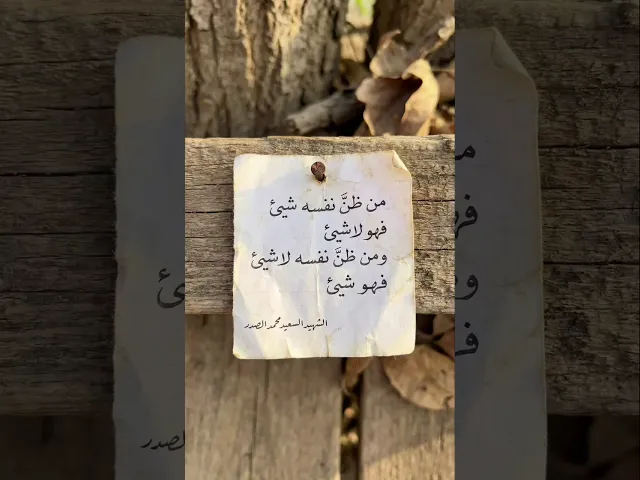 من ظنَّ نفسه شيئ
فهو لاشيئ
ومن ظنَّ نفسه لاشيئ
فهو شيئ
الشهيد السعيد محمد الصدر